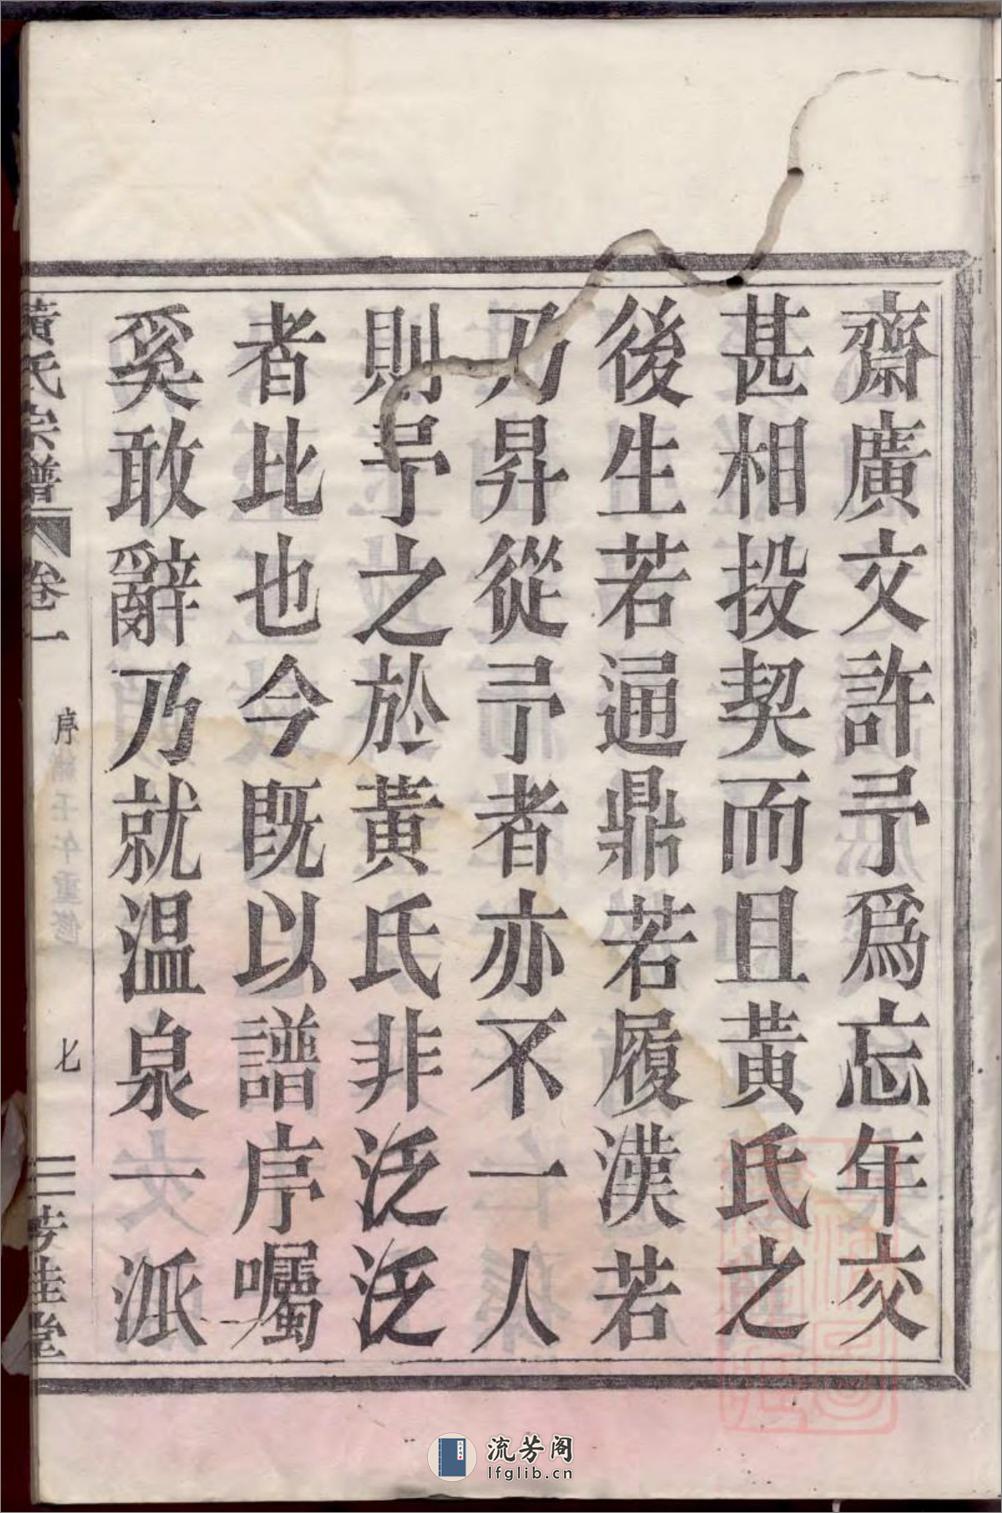 齋廣文許予爲忘年交
甚相投契而且黃氏之
後生若通鼎若履漢若
乃昇從予者亦不一人
則予之於黃氏非泛泛
者比也今既以譜序囑
奚敢辭乃就温泉一派
黃氏宗譜 卷一
序 緒壬午重修
七
三芳桂堂
流芳阁
lfglib.cn